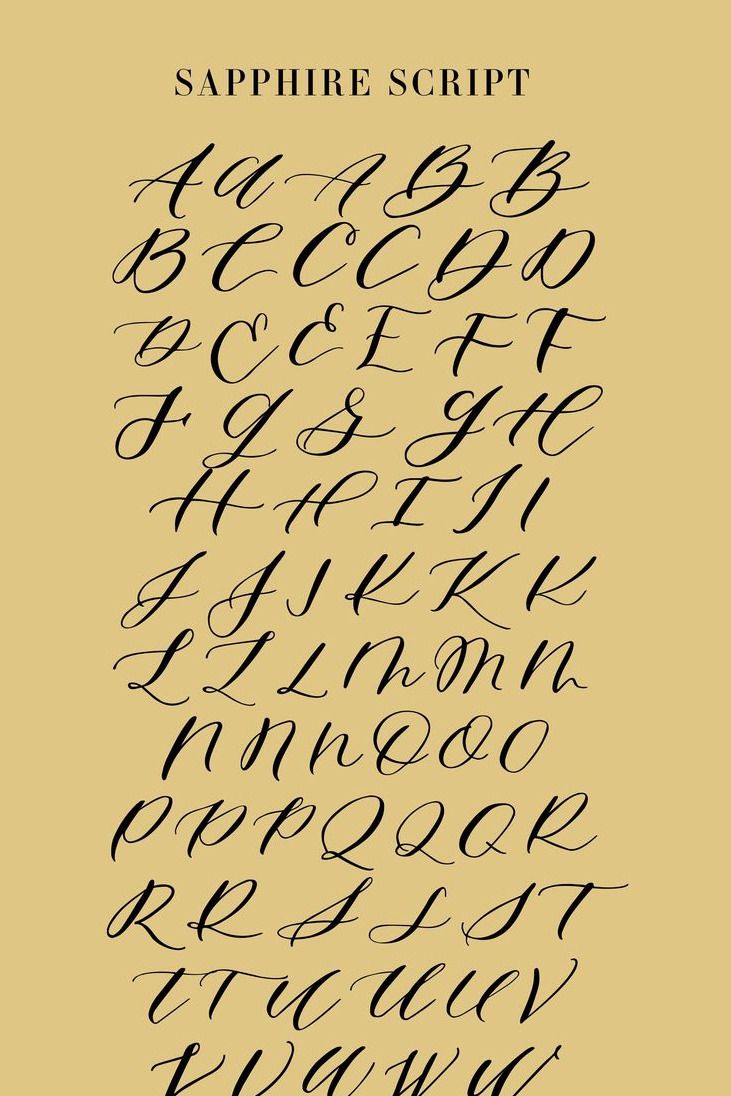 SAPPHIRE SCRIPT
A a A B B
B C C C D D
D E E E F F
F G G G H
H H I I I
J J J K K K
L L L M M M
N N N O O O
P P P Q Q Q R
R R S S S T
T T U U U V
V V W W W